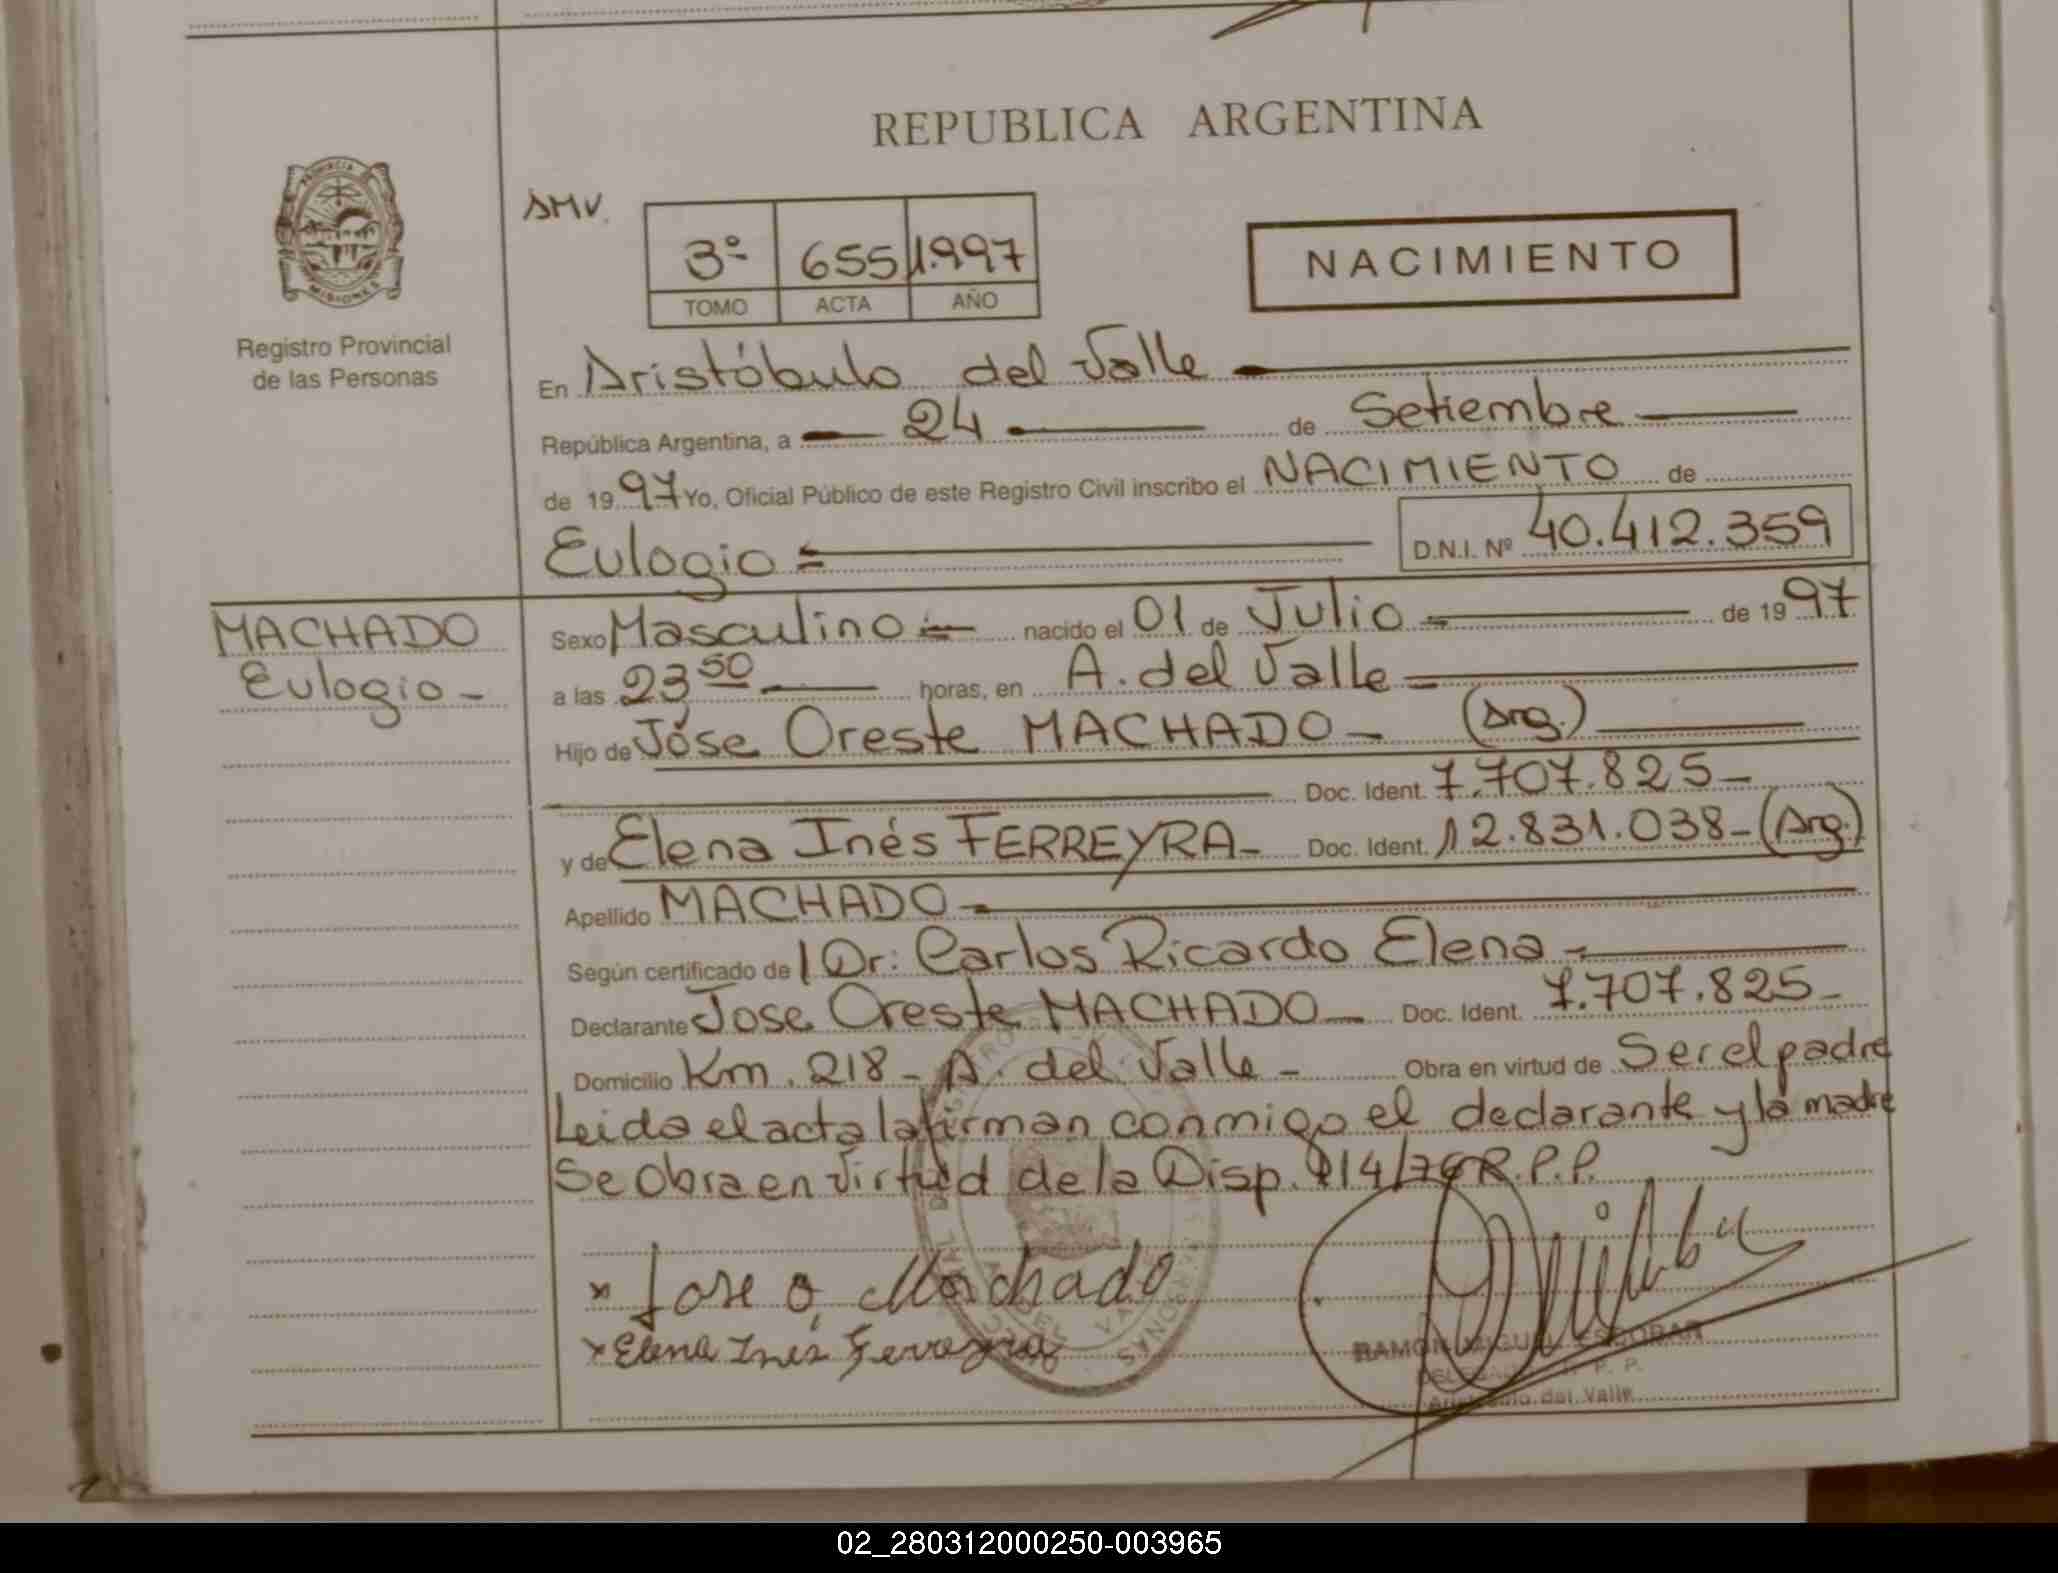 REPUBLICA ARGENTINA
PROVINCIA
MISIONES
Registro Provincial
de las Personas
SMV.
3º 655 1.997
TOMO ACTA AÑO
NACIMIENTO
En Aristóbulo del Valle
República Argentina, a 24 de Setiembre
de 1997 Yo, Oficial Público de este Registro Civil inscribo el NACIMIENTO de
Eulogio D.N.I. Nº 40.412.359
MACHADO
Eulogio -
Sexo Masculino nacido el 01 de Julio de 1997
a las 23 50 horas, en A. del Valle
Hijo de Jóse Oreste MACHADO - (Arg.)
Doc. Ident. 7.707.825 -
y de Elena Inés FERREYRA - Doc. Ident. 12.831.038 - (Arg.)
Apellido MACHADO -
Según certificado de Dr: Carlos Ricardo Elena -
Declarante Jose Oreste MACHADO - Doc. Ident. 7.707.825 -
Domicilio Km. 218 - A. del Valle - Obra en virtud de Ser el padre
Leida el acta la firman conmigo el declarante y la madre
Se Obra en virtud de la Disp. R.P.P.
x Jose O, Machado
x Elena Inés Ferreyra
RAMON MIGUEL ESCOBAR
R. P. P.
Aristóbulo del Valle
02_280312000250-003965